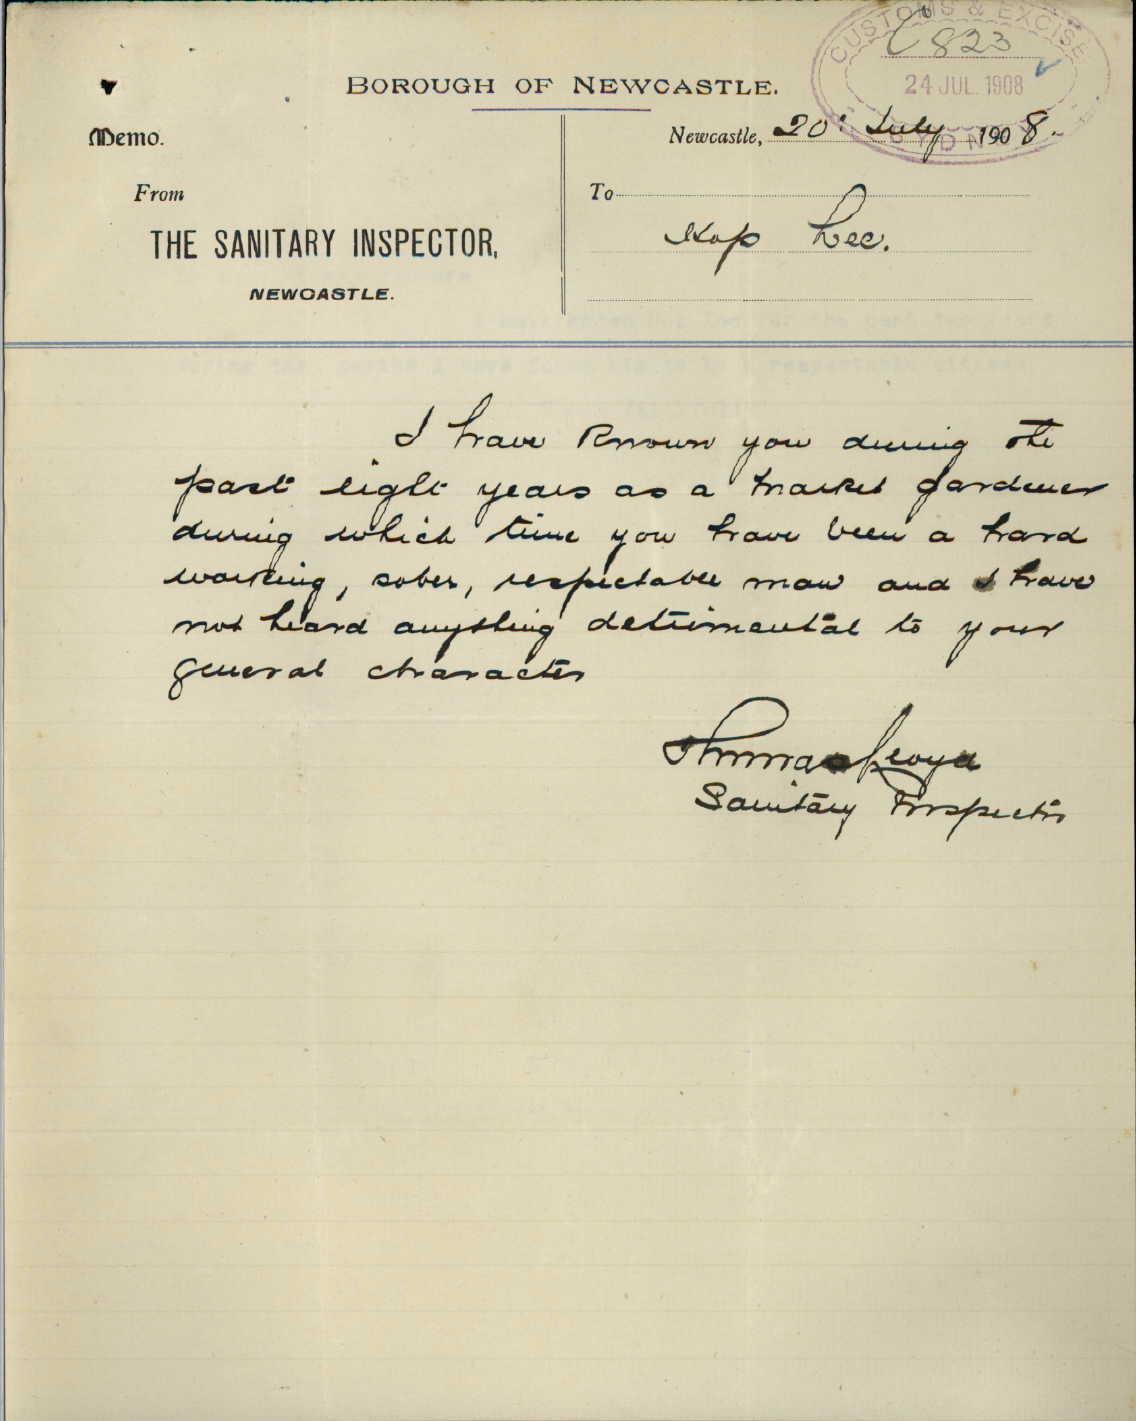 CUSTOMS & EXCISE
C 823
24 JUL. 1908
SYDNEY
BOROUGH OF NEWCASTLE.
Memo.
Newcastle, 20' July 1908.
From
To
THE SANITARY INSPECTOR,
NEWCASTLE.
Hop Lee.
I have known you during the
past eight years as a market gardener
during which time you have been a hard
working, sober, respectable man and I have
not heard anything detrimental to your
general character
Thomas Lloyd
Sanitary Inspector